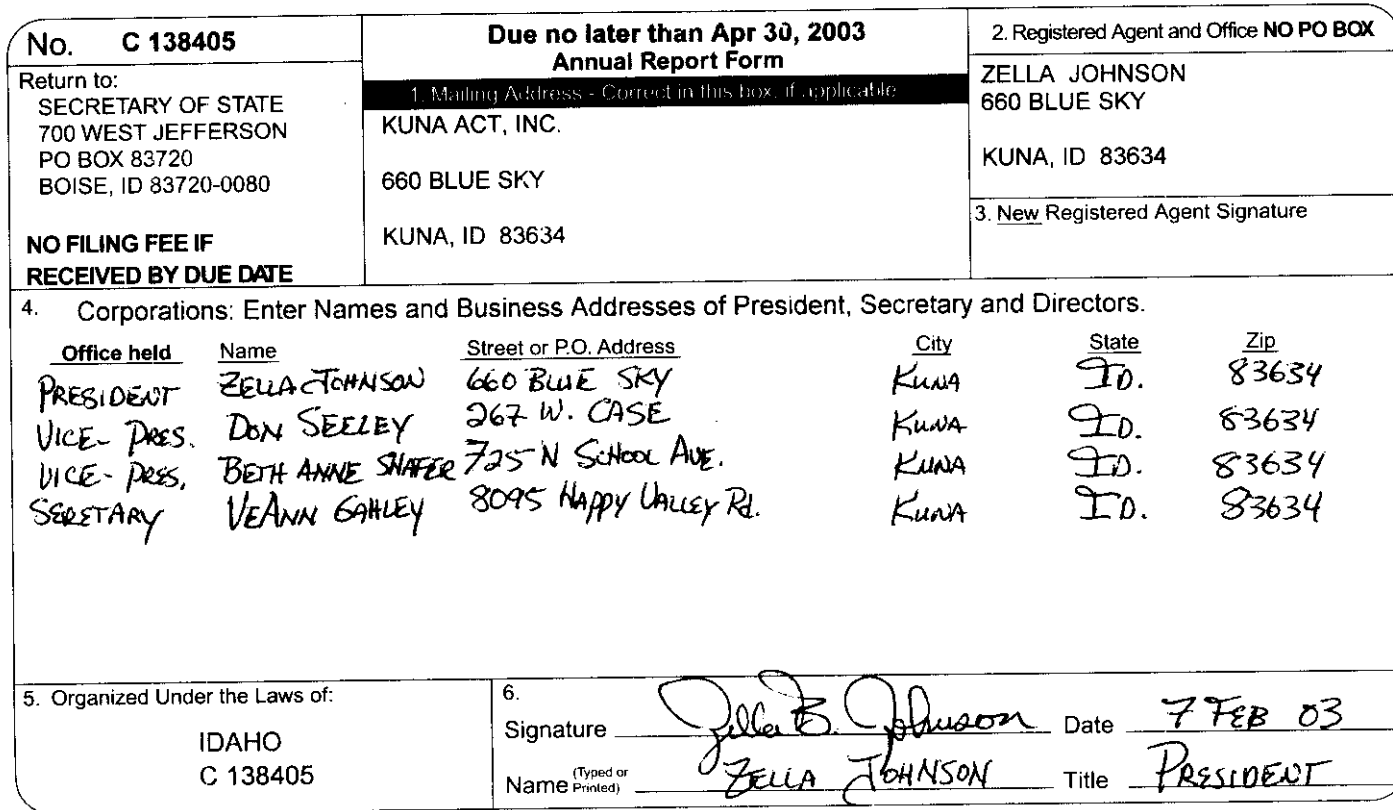 No. C 138405
Return to:
SECRETARY OF STATE
700 WEST JEFFERSON
PO BOX 83720
BOISE, ID 83720-0080
NO FILING FEE IF
RECEIVED BY DUE DATE
Due no later than Apr 30, 2003
Annual Report Form
1. Mailing Address - Correct in this box, if applicable
KUNA ACT, INC.
660 BLUE SKY
KUNA, ID 83634
2. Registered Agent and Office NO PO BOX
ZELLA JOHNSON
660 BLUE SKY
KUNA, ID 83634
3. New Registered Agent Signature
4. Corporations: Enter Names and Business Addresses of President, Secretary and Directors.
Office held Name Street or P.O. Address City State Zip
PRESIDENT ZELLA JOHNSON 660 BLUE SKY KUNA ID. 83634
VICE-PRES. DON SEELEY 267 W. CASE KUNA ID. 83634
VICE-PRES. BETH ANNE SHAFER 725 N SCHOOL AVE. KUNA ID. 83634
SERETARY VEANN GAHLEY 8095 HAPPY VALLEY Rd. KUNA ID. 83634
5. Organized Under the Laws of:
IDAHO
C 138405
6.
Signature Zella B. Johnson Date 7 FEB 03
Name (Typed or Printed) ZELLA JOHNSON Title PRESIDENT